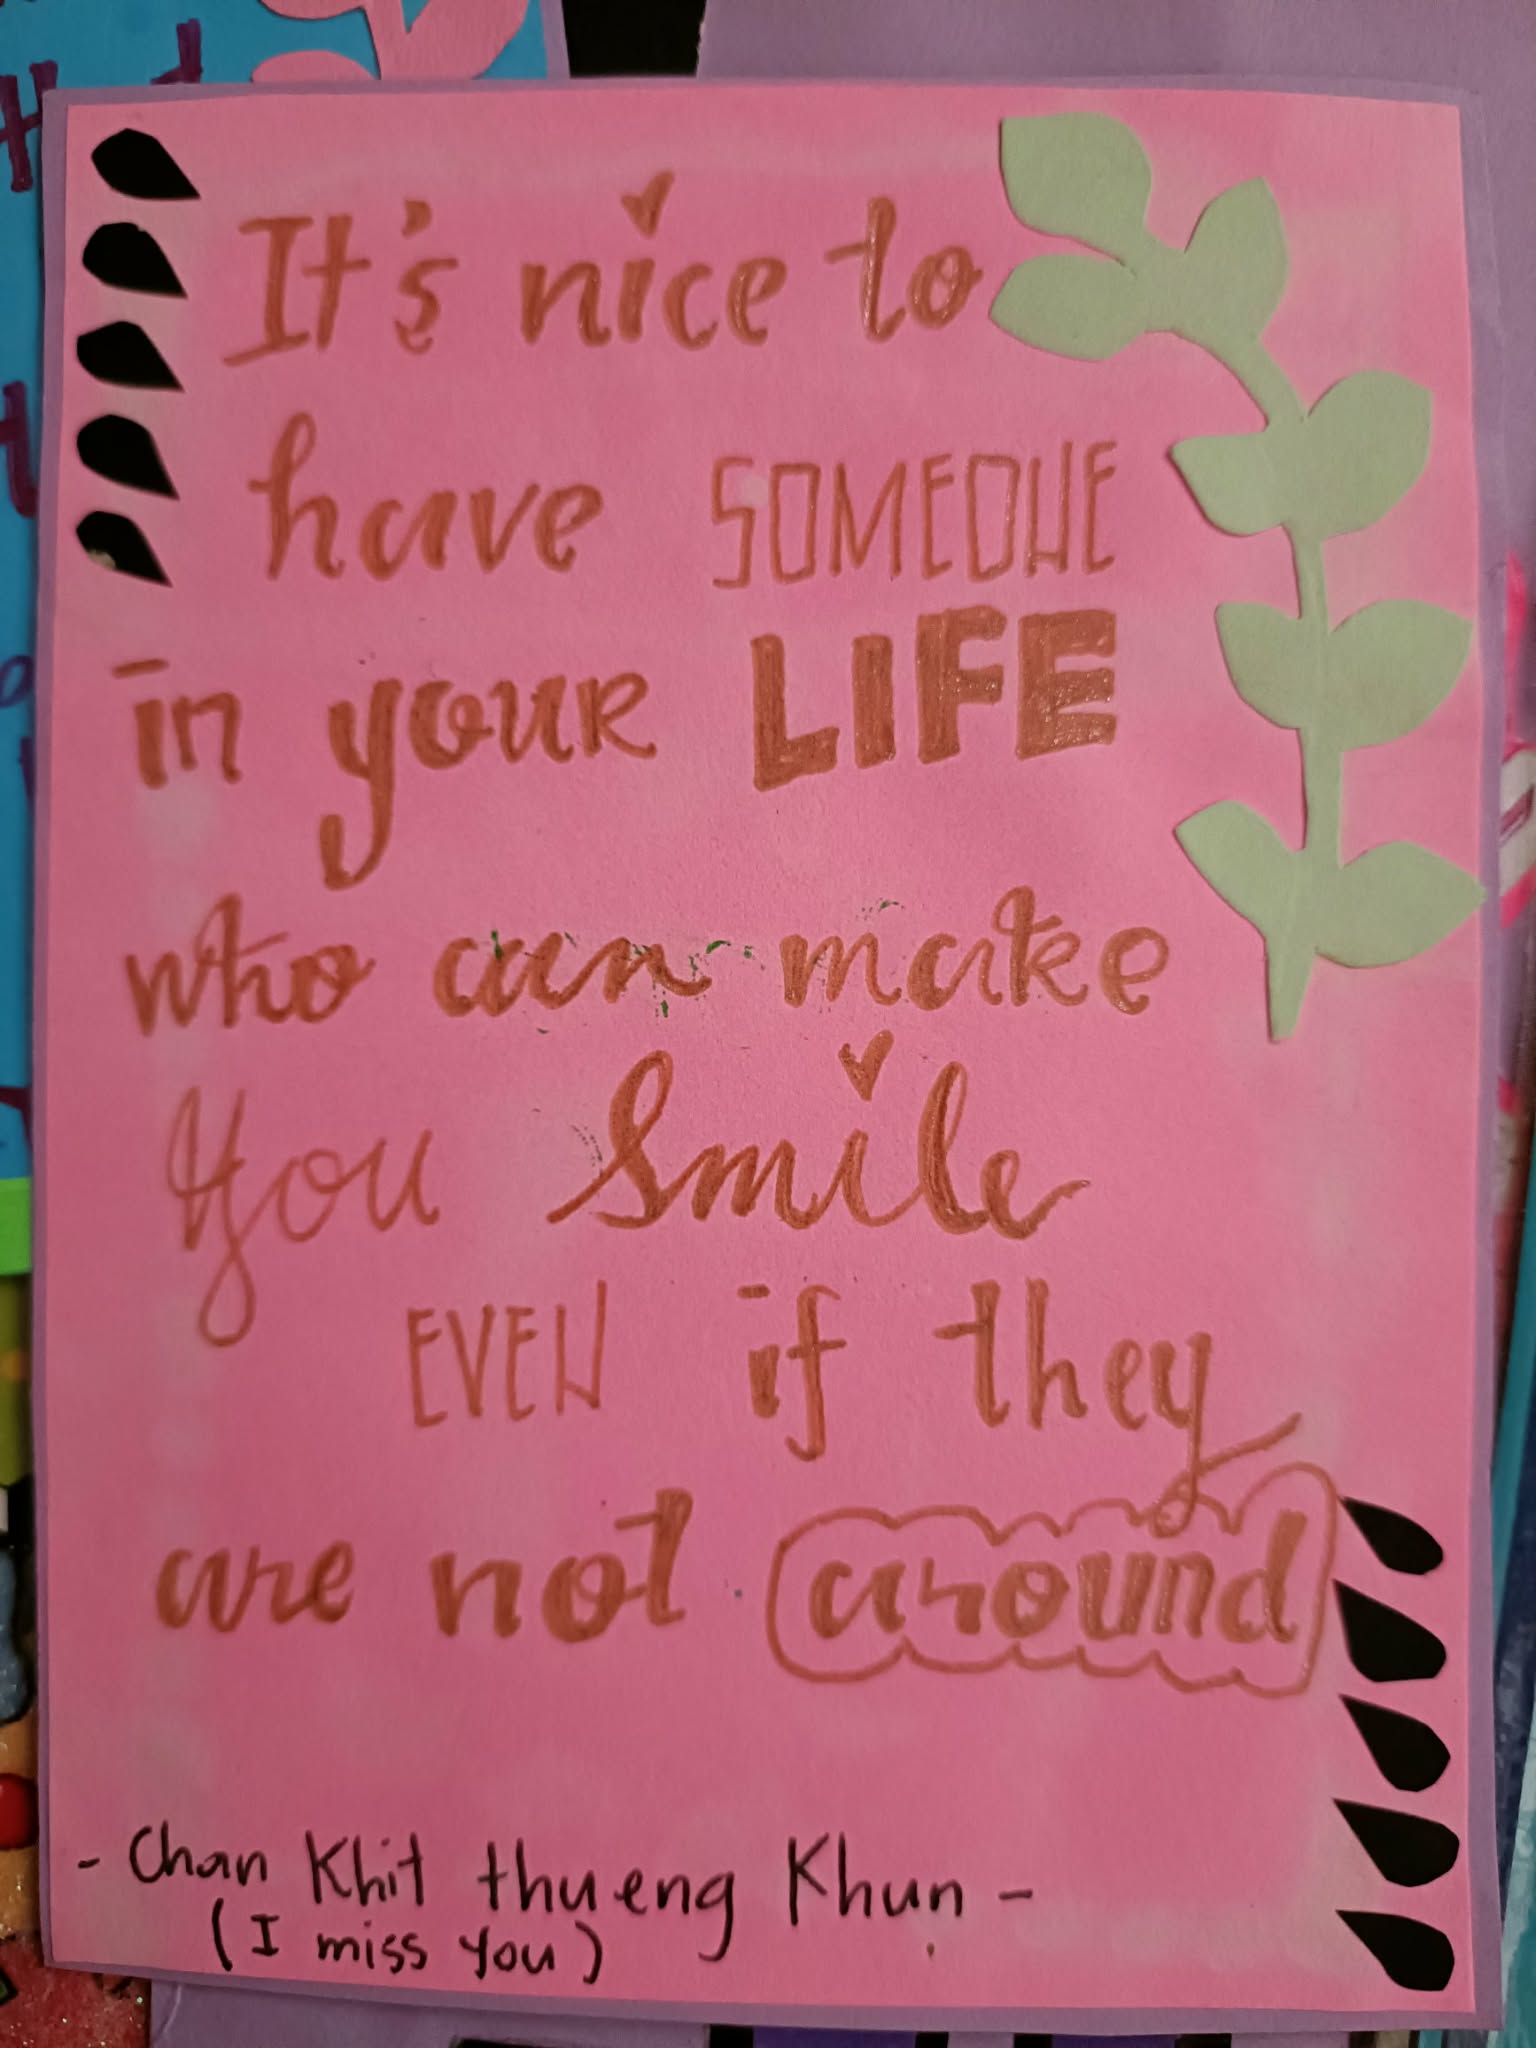 It's nice to
have SOMEONE
in your LIFE
who can make
You Smile
EVEN if they
are not around
- Chan Khit thueng Khun -
(I miss you)